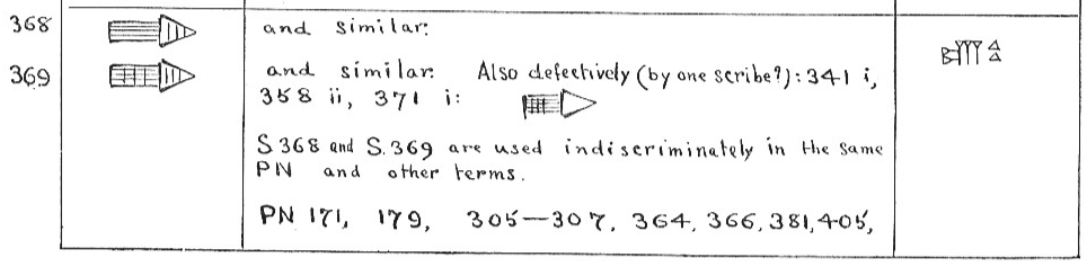 368 and similar:
369 and similar: Also defectively (by one scribe?): 341 i,
358 ii, 371 i:
S 368 and S.369 are used indiscriminately in the same
PN and other terms.
PN 171, 179, 305—307, 364, 366, 381, 405,